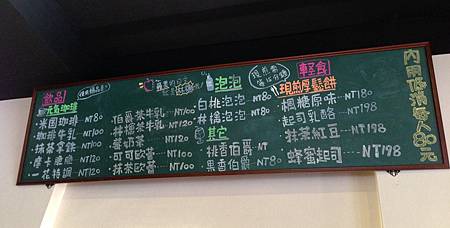 飲品
元氣咖啡
米圈咖啡 NT80
咖啡牛乳 NT100
抹茶拿鐵 NT120
摩卡脆脆 NT120
一花特調 NT120
伯爵茶牛乳 NT100
林檎茶牛乳 NT120
可可歐蕾 NT100
抹茶歐蕾 NT100
泡泡
白桃泡泡 NT80
林檎泡泡 NT80
其它
桃香伯爵 NT80
果香伯爵 NT80
現煎需
輕食
現煎厚鬆餅
楓糖原味 NT180
起司乳酪 NT198
抹茶紅豆 NT198
蜂蜜起司 NT198
內用低消每人80元